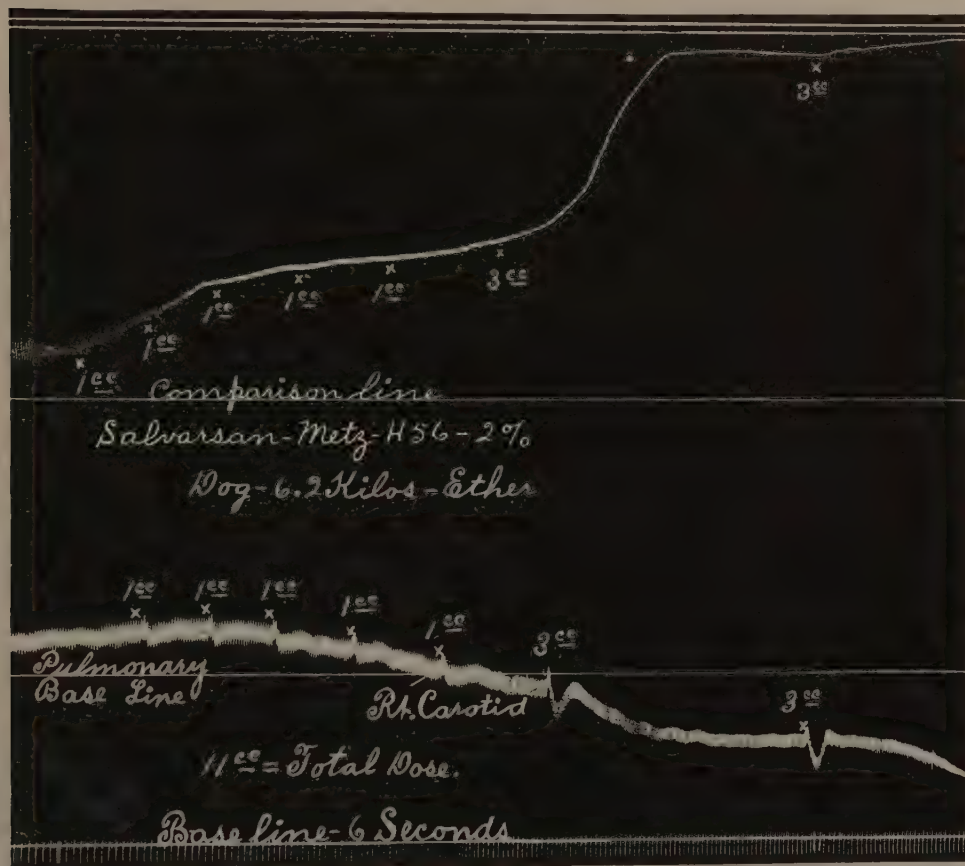 3 cc
1 cc
1 cc
1 cc
1 cc
1 cc
3 cc
Comparison line
Salvarsan-Metz-H56-2%
Dog-6.2 Kilos-Ether
1 cc
1 cc
1 cc
1 cc
1 cc
3 cc
Pulmonary
Base Line
Rt. Carotid
3 cc
11 cc = Total Dose.
Base line-6 Seconds